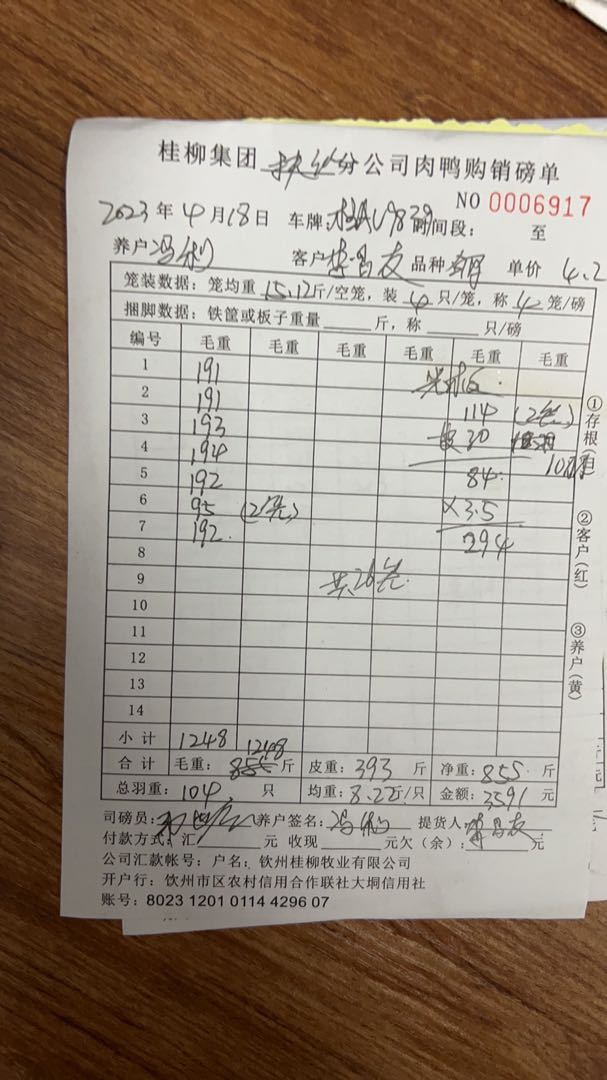 桂柳集团 分公司肉鸭购销磅单
NO 0006917
2023年4月18日 车牌: 时间段: 至
养户 冯利 客户 李昌友 品种 单价 4.2
笼装数据：笼均重 15.12斤/空笼，装 4 只/笼，称 4 笼/磅
捆脚数据：铁筐或板子重量 斤，称 只/磅
编号 毛重 毛重 毛重 毛重 毛重 毛重
1 191
2 191 114 (2笼)
3 193 30
4 194 84
5 192 ×3.5
6 95 (2笼) 294
7 192
8
9 共26笼
10
11
12
13
14
小计 1248 1248
合计 毛重：855斤 皮重：393 斤 净重：855 斤
总羽重：104 只 均重：8.22斤/只 金额：3591 元
司磅员： 养户签名：冯利 提货人：李昌友
付款方式：汇 元 收现 元欠（余）： 元
公司汇款帐号：户名：钦州桂柳牧业有限公司
开户行：钦州市区农村信用合作联社大垌信用社
账号：8023 1201 0114 4296 07
①存根(白
②客户(红)
③养户(黄)